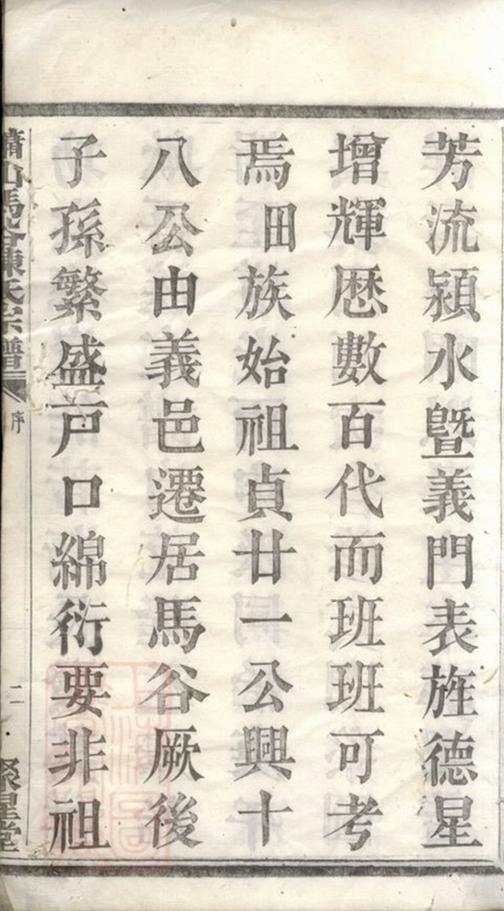 芳流潁水曁義門表旌德星
增輝歷數百代而班班可考
焉田族始祖貞廿一公興十
八公由義邑遷居馬谷厥後
子孫繁盛戶口綿衍要非祖
蕭山馬谷陳氏宗譜
序
二
聚星堂